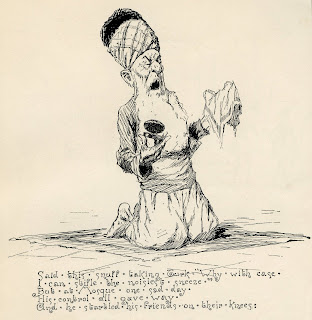 Said · this · snuff · taking · Turk · "Why · with · ease ·
I · can · stifle · the · noisiest · sneeze · "
But · at · Mosque · one · sad · day ·
His · control · all · gave · way ·
And · he · startled · his · friends · on · their · knees: